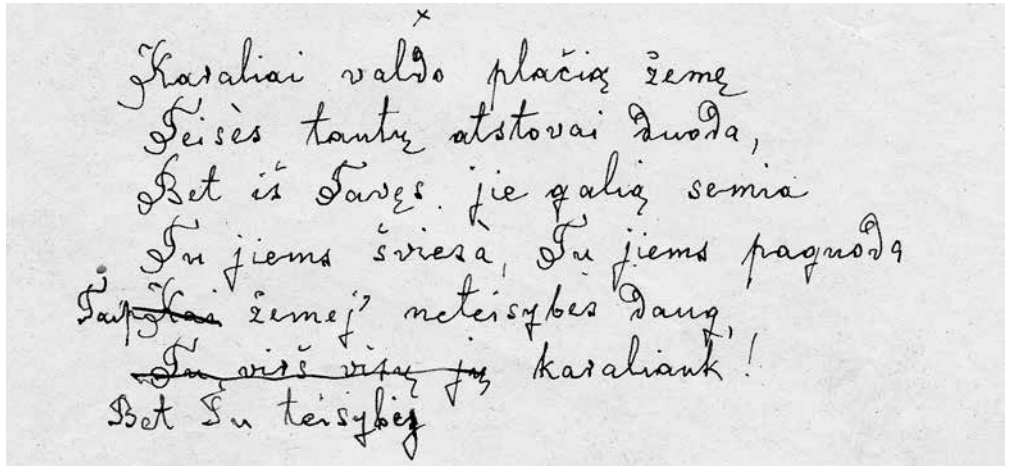 Karaliai valdo plačią žemę
Teisės tautų atstovai duoda,
Bet iš Tavęs jie galią semia
Tu jiems šviesa, Tu jiems paguoda
Taip žemėj' neteisybės daug,
Tu virš visų jų karaliauk!
Bet Tu teisybėj